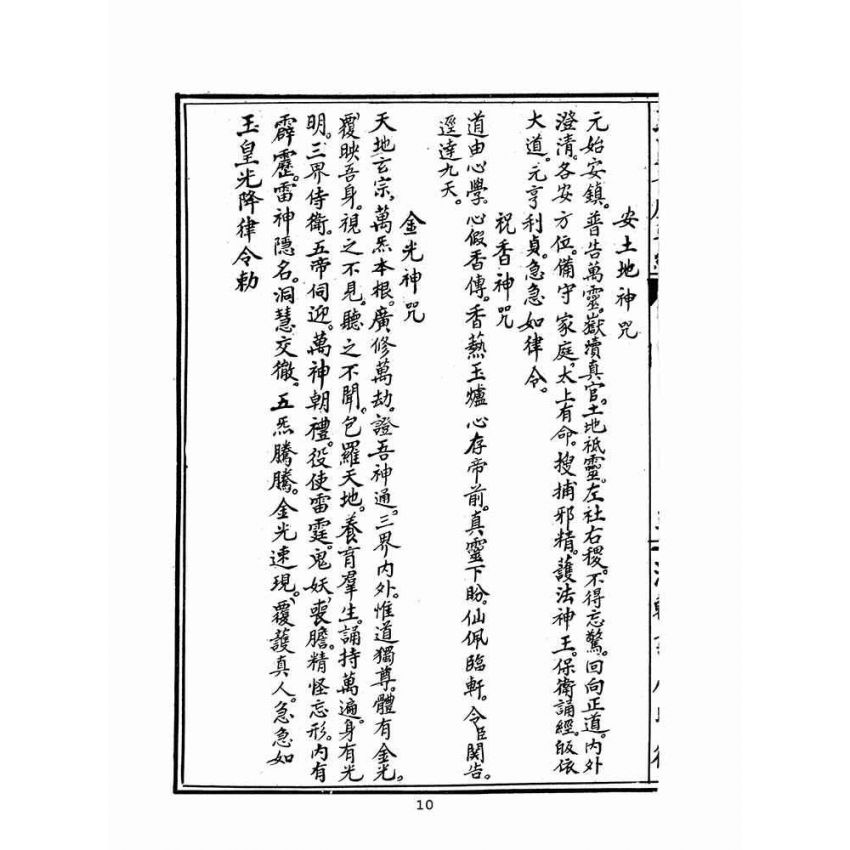 安土地神咒
元始安鎮。普告萬靈。嶽瀆真官。土地祗靈。左社右稷。不得忘驚。回向正道。內外
澄清。各安方位。備守家庭。太上有命。搜捕邪精。護法神王。保衛誦經。皈依
大道。元亨利貞。急急如律令。
祝香神咒
道由心學。心假香傳。香熱玉爐心存帝前。真靈下盼。仙佩臨軒。令臣関告。
逕達九天。
金光神咒
天地玄宗。萬炁本根。廣修萬劫。證吾神通。三界內外。惟道獨尊。體有金光。
覆映吾身。視之不見。聽之不聞。包羅天地。養育羣生。誦持萬遍。身有光
明。三界侍衛。五帝伺迎。萬神朝禮。役使雷霆。鬼妖喪膽。精怪忘形。內有
霹靂。雷神隱名。洞慧交徹。五炁騰騰。金光速現。覆護真人。急急如
玉皇光降律令勅
10